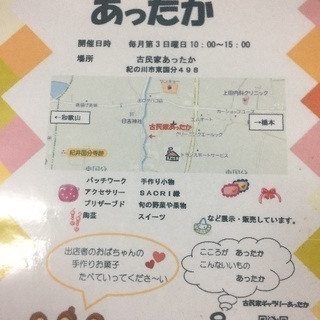 あったか
開催日時 毎月第3日曜日10:00～15:00
場所 古民家あったか
紀の川市東国分498
上田内科クリニック
←和歌山
古民家あったか
→橋本
紀伊国分寺跡
パッチワーク 手作り小物
アクセサリー SAORI織
プリザーブド 旬の野菜や果物
陶芸 スイーツ
など展示・販売しています。
出店者のおばちゃんの
手作りお菓子
たべていってくださ～い
こころが あったか
こんないいもの
あったか
古民家ギャラリーあったか